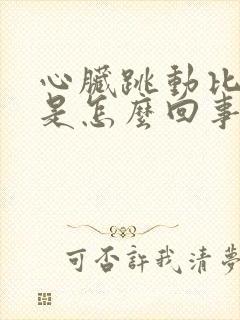 心臟跳動比
是怎麼回事
可否許我清夢